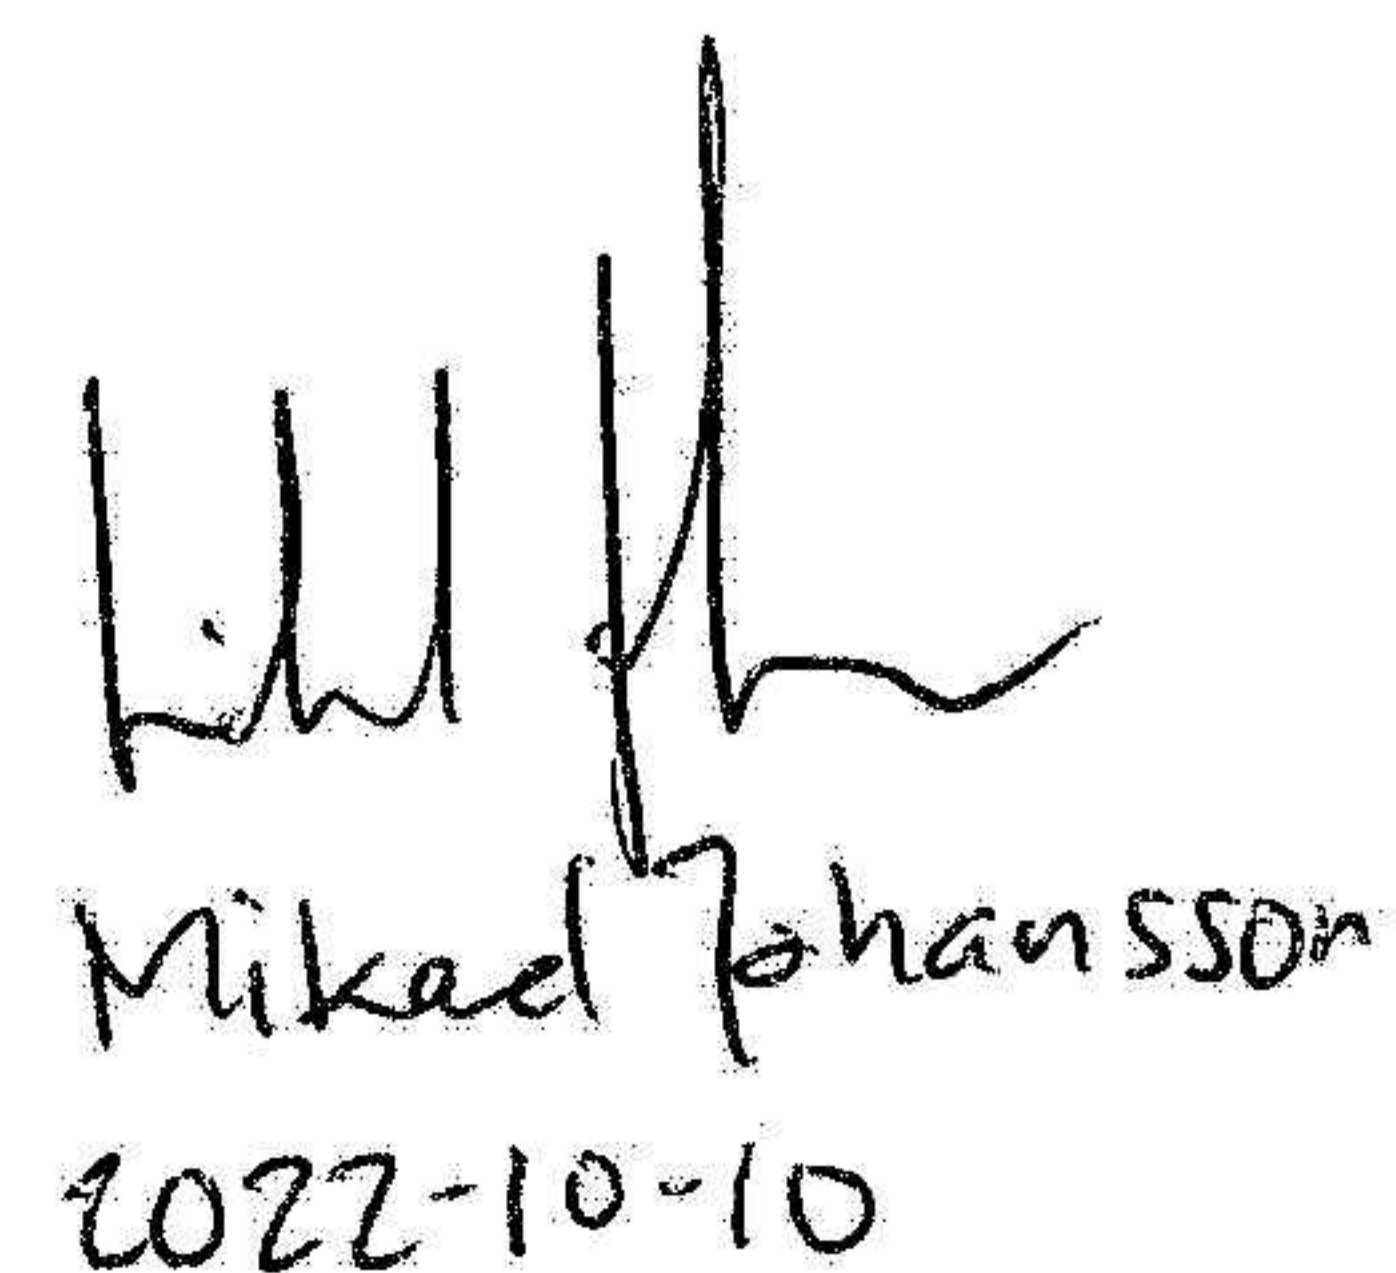 Mikael Johansson
2022-10-10